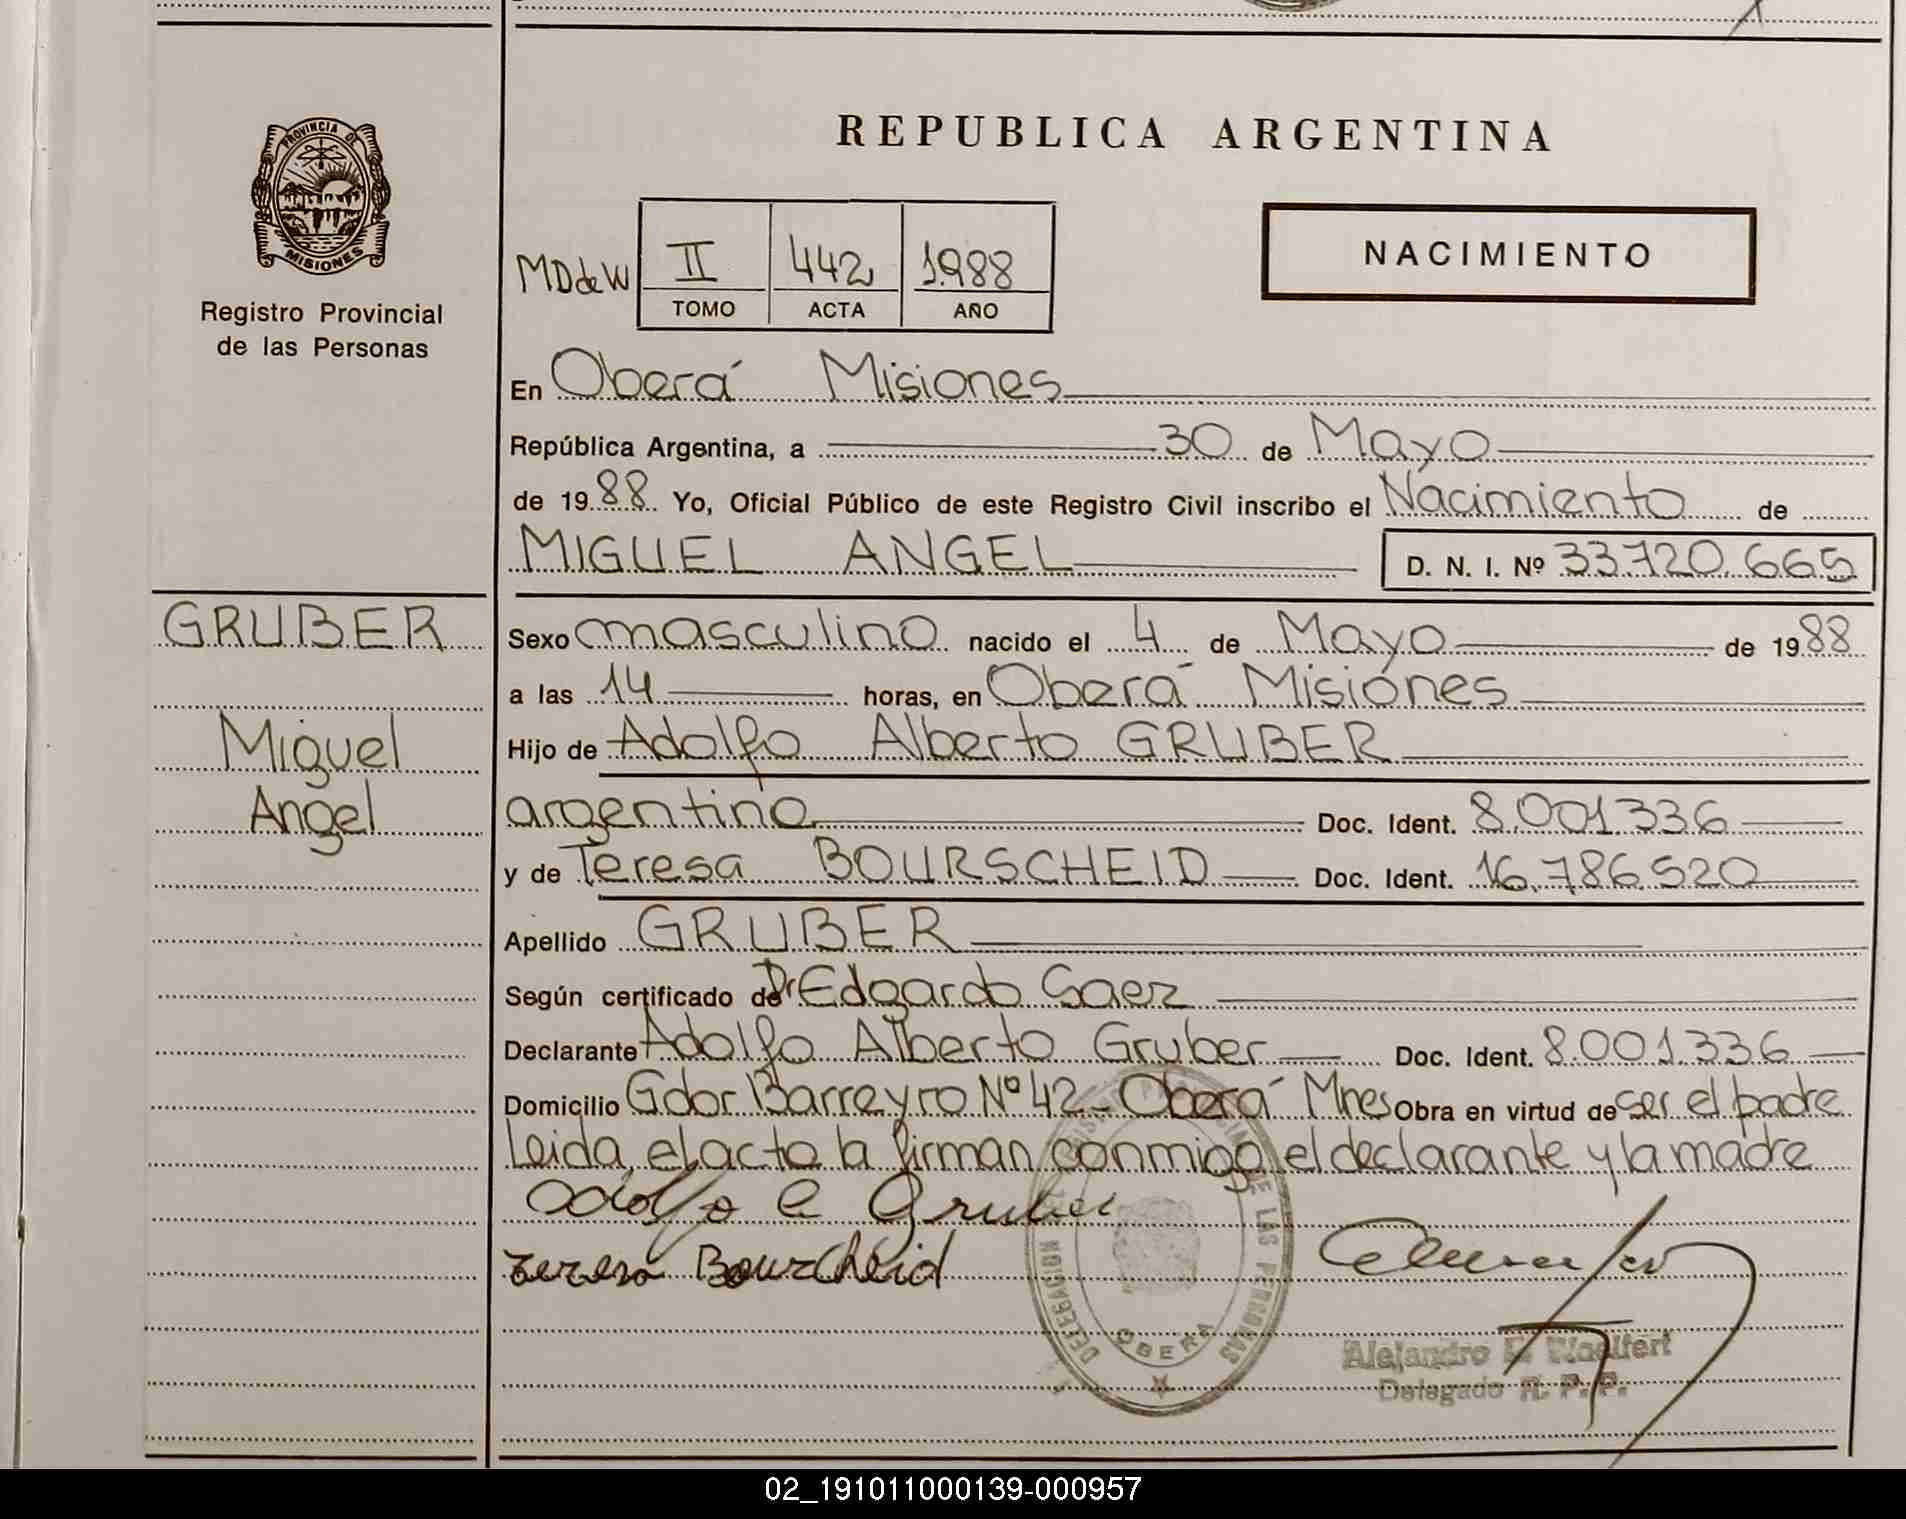 PROVINCIA DE
MISIONES
Registro Provincial
de las Personas
REPUBLICA ARGENTINA
NACIMIENTO
MDdeW
II 442 1988
TOMO ACTA AÑO
En Oberá Misiones
República Argentina, a 30 de Mayo
de 1988 Yo, Oficial Público de este Registro Civil inscribo el Nacimiento de
MIGUEL ANGEL D. N. I. Nº 33.720.665
GRUBER
Miguel
Angel
Sexo masculino nacido el 4 de Mayo de 1988
a las 14 horas, en Oberá Misiones
Hijo de Adolfo Alberto GRUBER
argentino Doc. Ident. 8.001.336
y de Teresa BOURSCHEID Doc. Ident. 16.786.520
Apellido GRUBER
Según certificado de Dr Edgardo Saez
Declarante Adolfo Alberto Gruber Doc. Ident. 8.001.336
Domicilio Gdor Barreyro Nº 42 - Oberá Mnes Obra en virtud de ser el padre
Leida, el acto la firman conmigo el declarante y la madre
Adolfo A Gruber
Teresa Bourcheid
DELEGACION DEL REGISTRO PROVINCIAL DE LAS PERSONAS
OBERA
Alejandro E. Waelfert
Delegado R. P. P.
02_191011000139-000957